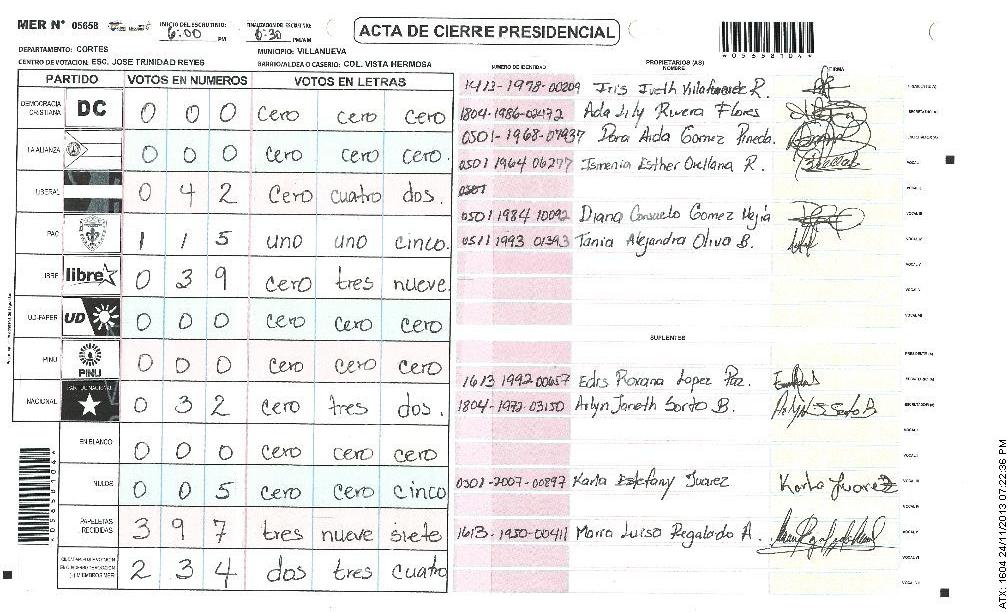 MER N° 05658
INICIO DEL ESCRUTINIO: 6:00 PM
FINALIZACION DEL ESCRUTINIO 6:30 PM/AM
ACTA DE CIERRE PRESIDENCIAL
4056581044
DEPARTAMENTO: CORTES
MUNICIPIO: VILLANUEVA
CENTRO DE VOTACION: ESC. JOSE TRINIDAD REYES
BARRIO/ALDEA O CASERIO: COL. VISTA HERMOSA
PARTIDO VOTOS EN NUMEROS VOTOS EN LETRAS
DEMOCRACIA CRISTIANA DC 0 0 0 cero cero cero
LA ALIANZA 0 0 0 cero cero cero.
LIBERAL 0 4 2 cero cuatro dos.
PAC 1 1 5 uno uno cinco.
LIBRE libre 0 3 9 cero tres nueve.
UD-FAPER UD 0 0 0 cero cero cero
PINU PINU 0 0 0 cero cero cero
NACIONAL 0 3 2 cero tres dos.
EN BLANCO 0 0 0 cero cero cero
NULOS 0 0 5 cero cero cinco
PAPELETAS RECIBIDAS 3 9 7 tres nueve siete
2 3 4 dos tres cuatro
NUMERO DE IDENTIDAD
PROPIETARIOS (AS)
NOMBRE
FIRMA
1804-1986-02472 Ada Lily Rivera Flores
0501-1968-07937 Dora Aida Gomez Pineda.
0501 1964 06277 Ismenia Esther Orellana R.
0501
0501 1984 10092 Diana Consuelo Gomez Mejia
0511 1993 01393 Tania Alejandra Oliva B.
SUPLENTES
1613 1992 00657 Edis Roxana Lopez Paz.
1804-1972-03150 Arlyn Janeth Sorto B.
0301-2007-00897 Karla Estefany Juarez Karla Juarez
1613-1950-00411 Maria Luisa Regalado A.
ATX: 1604 24/11/2013 07:22:36 PM